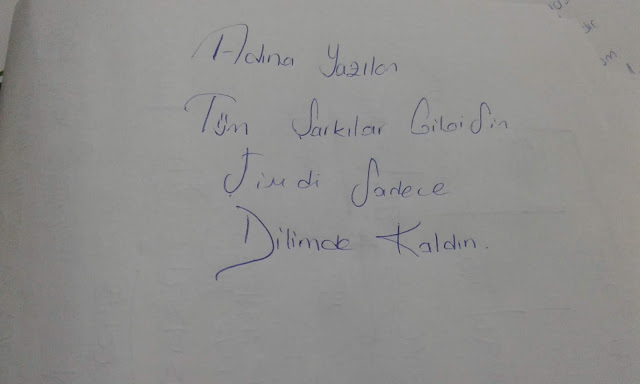 Adına Yazılan
Tüm Şarkılar Gibisin
Şimdi Sadece
Dilimde Kaldın.